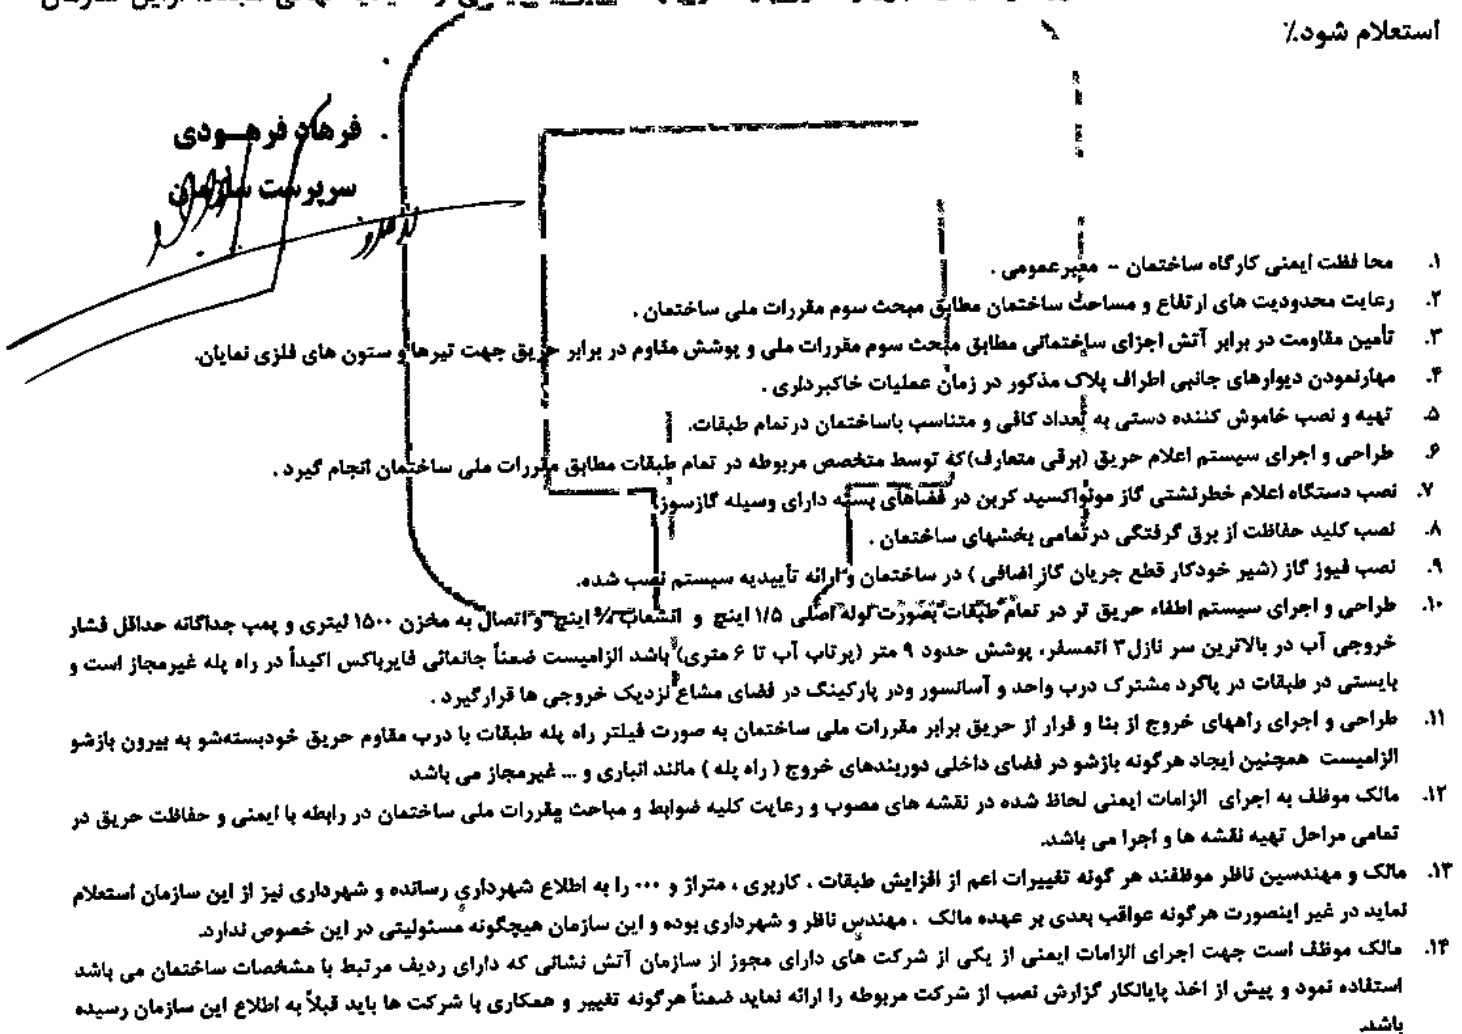 استعلام شود٪
فرهاد فرهــودی
سرپرست سازمان
۱. محا فظت ایمنی کارگاه ساختمان – معبرعمومی .
۲. رعایت محدودیت های ارتفاع و مساحت ساختمان مطابق مبحث سوم مقررات ملی ساختمان .
۳. تأمین مقاومت در برابر آتش اجزای ساختمانی مطابق مبحث سوم مقررات ملی و پوشش مقاوم در برابر حریق جهت تیرها و ستون های فلزی نمایان.
۴. مهارنمودن دیوارهای جانبی اطراف پلاک مذکور در زمان عملیات خاکبرداری .
۵. تهیه و نصب خاموش کننده دستی به تعداد کافی و متناسب باساختمان درتمام طبقات.
۶. طراحی و اجرای سیستم اعلام حریق (برقی متعارف)که توسط متخصص مربوطه در تمام طبقات مطابق مقررات ملی ساختمان انجام گیرد .
۷. نصب دستگاه اعلام خطرنشتی گاز مونواکسید کربن در فضاهای بسته دارای وسیله گازسوز
۸. نصب کلید حفاظت از برق گرفتگی درتمامی بخشهای ساختمان .
۹. نصب فیوز گاز (شیر خودکار قطع جریان گاز اضافی ) در ساختمان و ارائه تأییدیه سیستم نصب شده.
۱۰. طراحی و اجرای سیستم اطفاء حریق تر در تمام طبقات بصورت لوله اصلی ۱/۵ اینچ و انشعاب اینچ و اتصال به مخزن ۱۵۰۰ لیتری و پمپ جداگانه حداقل فشار
خروجی آب در بالاترین سر نازل۳ اتمسفر، پوشش حدود ۹ متر (پرتاب آب تا ۶ متری) باشد الزامیست ضمناً جانمائی فایرباکس اکیداً در راه پله غیرمجاز است و
بایستی در طبقات در پاگرد مشترک درب واحد و آسانسور ودر پارکینگ در فضای مشاع نزدیک خروجی ها قرارگیرد .
۱۱. طراحی و اجرای راههای خروج از بنا و فرار از حریق برابر مقررات ملی ساختمان به صورت فیلتر راه پله طبقات با درب مقاوم حریق خودبسته‌شو به بیرون بازشو
الزامیست همچنین ایجاد هرگونه بازشو در فضای داخلی دوربندهای خروج ( راه پله ) مانند انباری و ... غیرمجاز می باشد
۱۲. مالک موظف به اجرای الزامات ایمنی لحاظ شده در نقشه های مصوب و رعایت کلیه ضوابط و مباحث مقررات ملی ساختمان در رابطه با ایمنی و حفاظت حریق در
تمامی مراحل تهیه نقشه ها و اجرا می باشد.
۱۳. مالک و مهندسین ناظر موظفند هر گونه تغییرات اعم از افزایش طبقات ، کاربری ، متراژ و ... را به اطلاع شهرداری رسانده و شهرداری نیز از این سازمان استعلام
نماید در غیر اینصورت هرگونه عواقب بعدی بر عهده مالک ، مهندس ناظر و شهرداری بوده و این سازمان هیچگونه مسئولیتی در این خصوص ندارد.
۱۴. مالک موظف است جهت اجرای الزامات ایمنی از یکی از شرکت های دارای مجوز از سازمان آتش نشانی که دارای ردیف مرتبط با مشخصات ساختمان می باشد
استفاده نمود و پیش از اخذ پایانکار گزارش نصب از شرکت مربوطه را ارائه نماید ضمناً هرگونه تغییر و همکاری با شرکت ها باید قبلاً به اطلاع این سازمان رسیده
باشد.